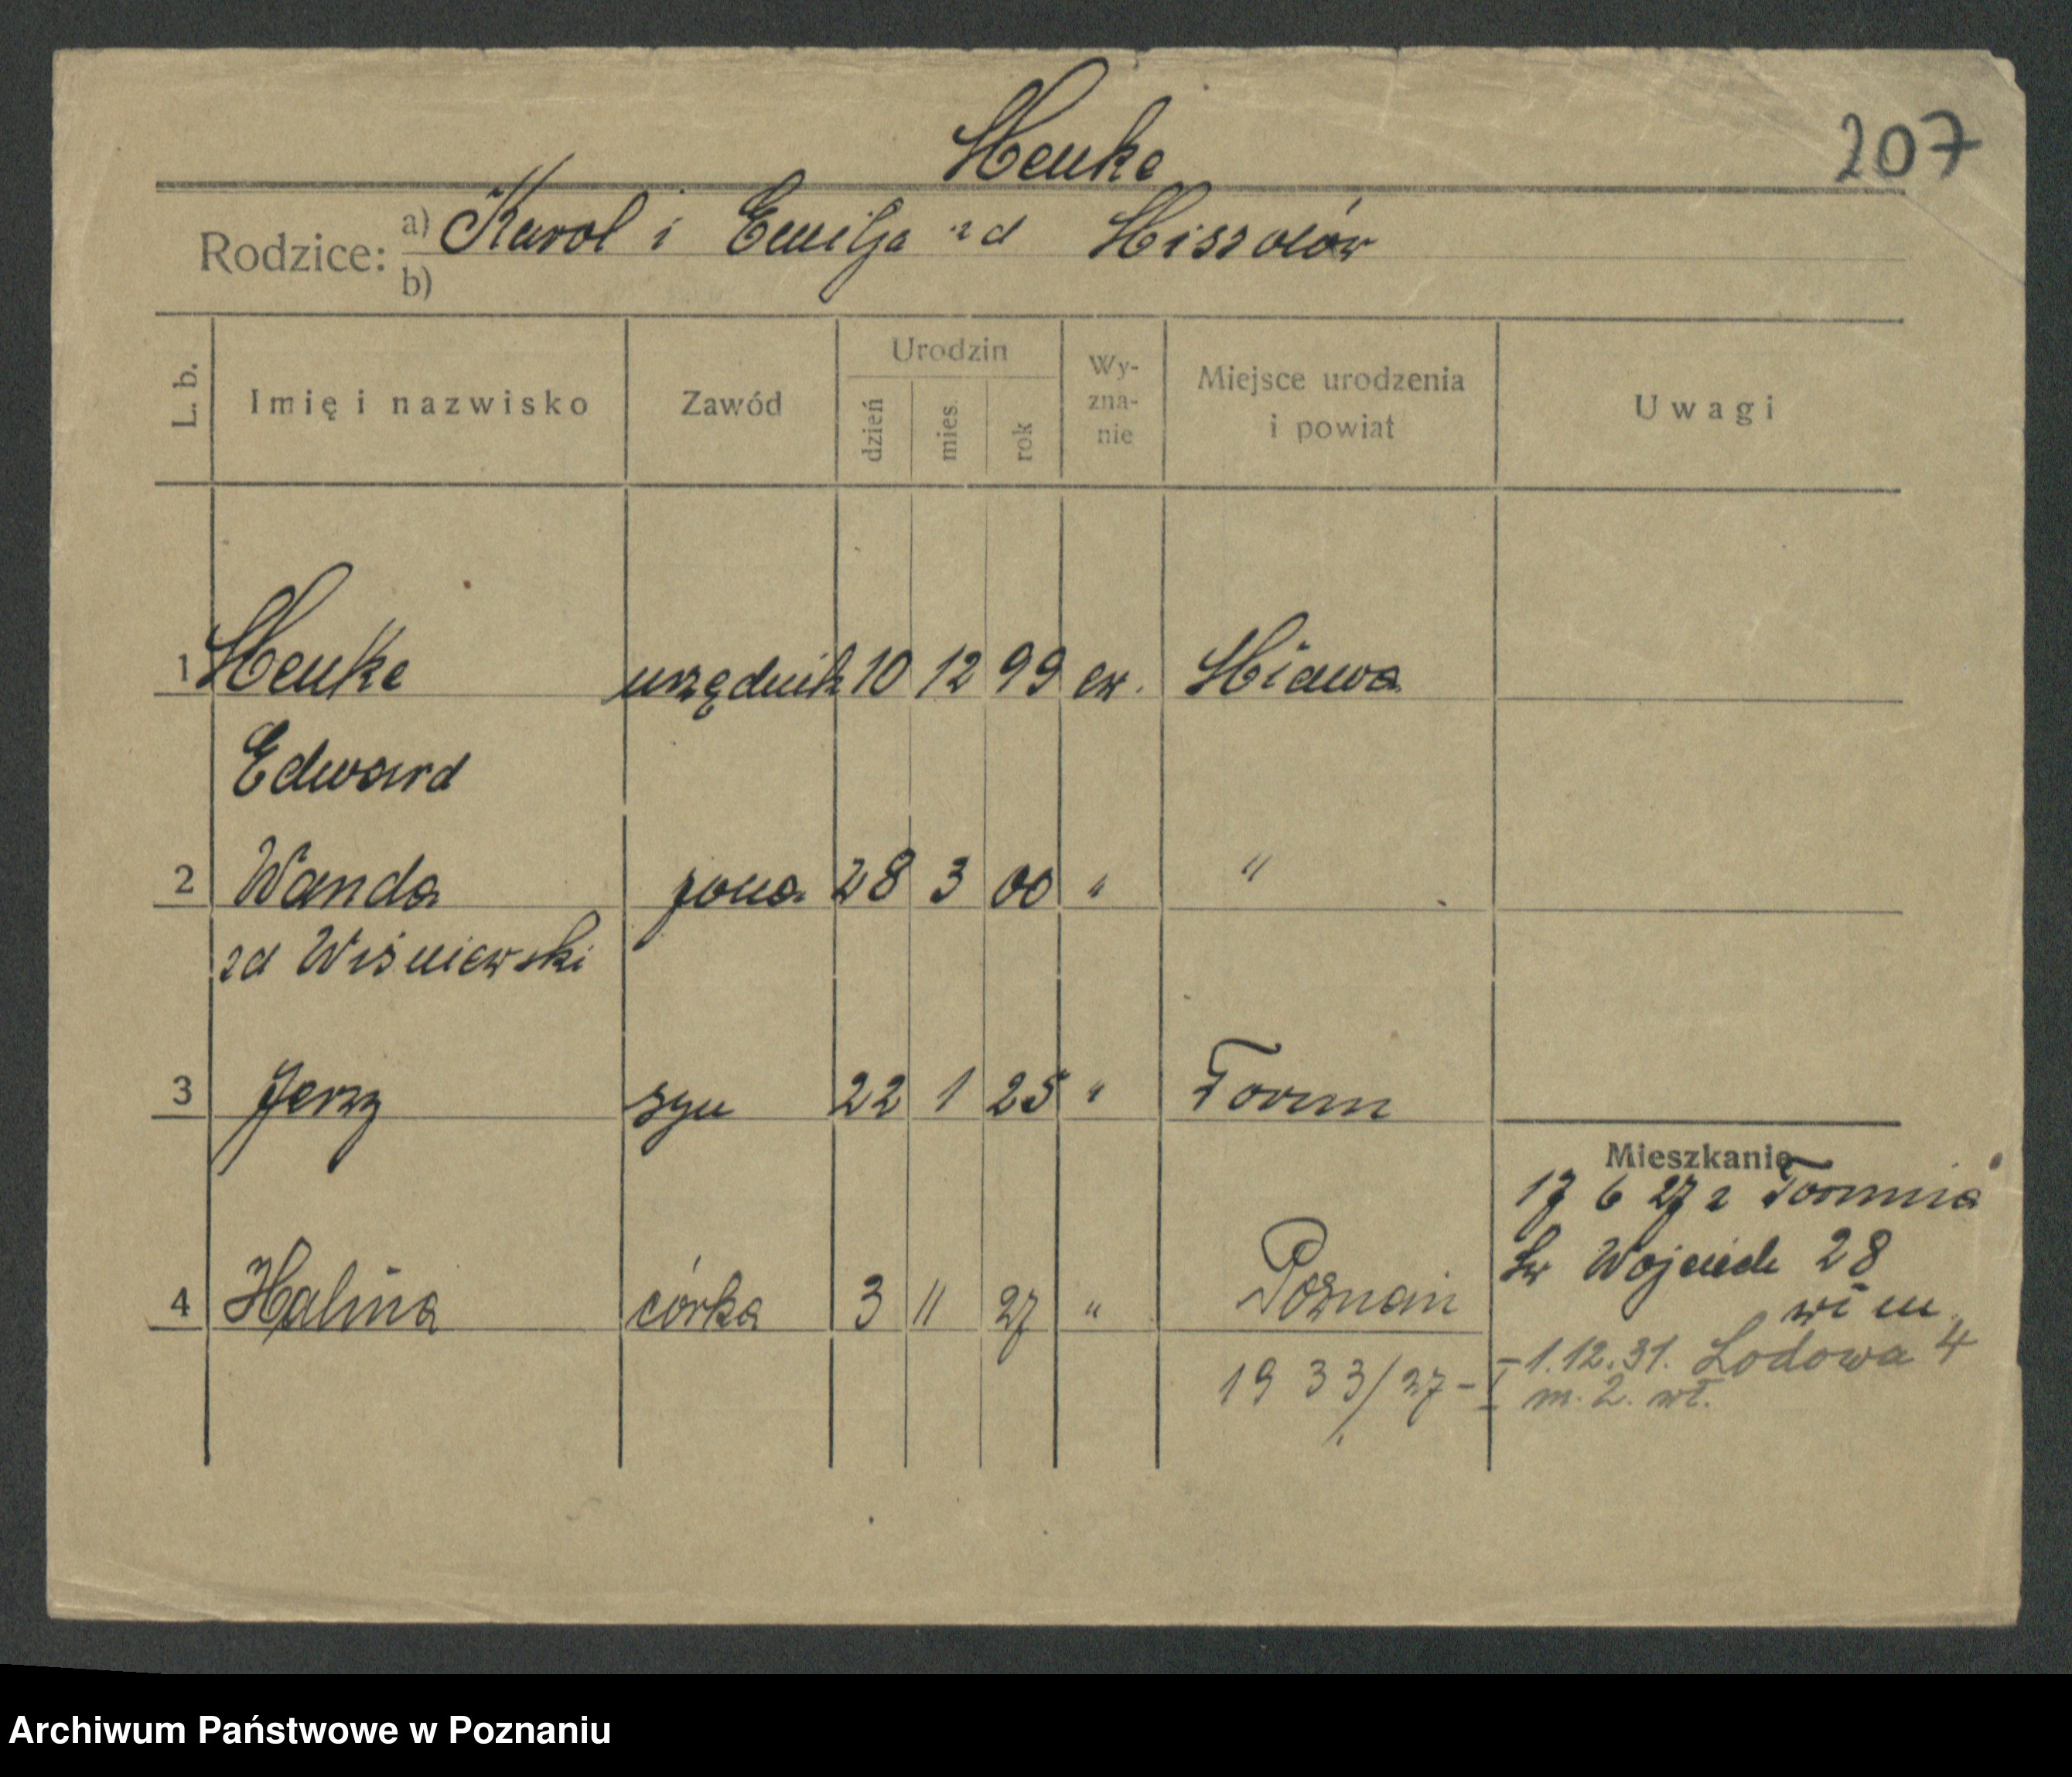 Henke
207
Rodzice: a) Karol i Emilja zd
b)
L. b. Imię i nazwisko Zawód Urodzin dzień mies. rok Wy-zna-nie Miejsce urodzenia i powiat Uwagi
1 Henke urzędnik 10 12 99 ew.
Edward
2 Wanda żona 28 3 00 " "
zd Wiśniewski
3 Jerzy syn 22 1 25 " Toruń
Mieszkanie
17 6 27 z Torunia
Św Wojciech 28
4 Halina córka 3 11 27 " Poznań
1933/27-I
-1.12.31. Lodowa 4
m. 2. wł.
Archiwum Państwowe w Poznaniu